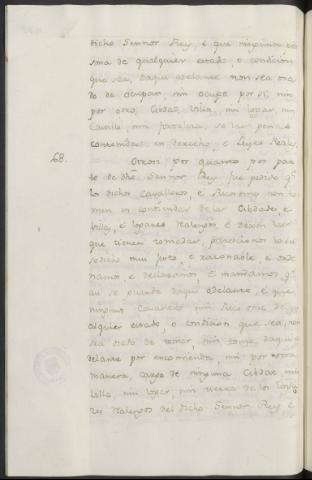 dicho Sennor Rey, é que ninguna per
sona de qualquier estado, o condicion
que sea, daqui adelante non sea osa
do de ocupar, nin ocupe por sí, nin
por otro, Cibdat, Villa, nin logar, nin
Castillo, nin fortaleza, so las penas
contenidas en derecho, é Leyes Reales.
68. Otrosi por quanto por par
te de dho. Sennor Rey fue pedido qe
los dichos Cavalleros, é Ricos omes non to
men en comiendas de las Cibdades, é
Villas, é logares Realengos, é dexen las
que tienen tomadas, parescionos lo su
sodicho mui justo, é razonable, é orde
namos é declaramos é mandamos, qe
asi se guarde daqui adelante, é que
ningun Cavallero, nin Rico ome de qu
alquier estado, o condicion que sea, non
sea osado de tomar, nin tome, daqui a
delante por encomienda, nin por otra
manera, cargo de ninguna Cibdat, nin
Villa, nin logar, nin tierra de los loga
res Realengos del dicho Sennor Rey é